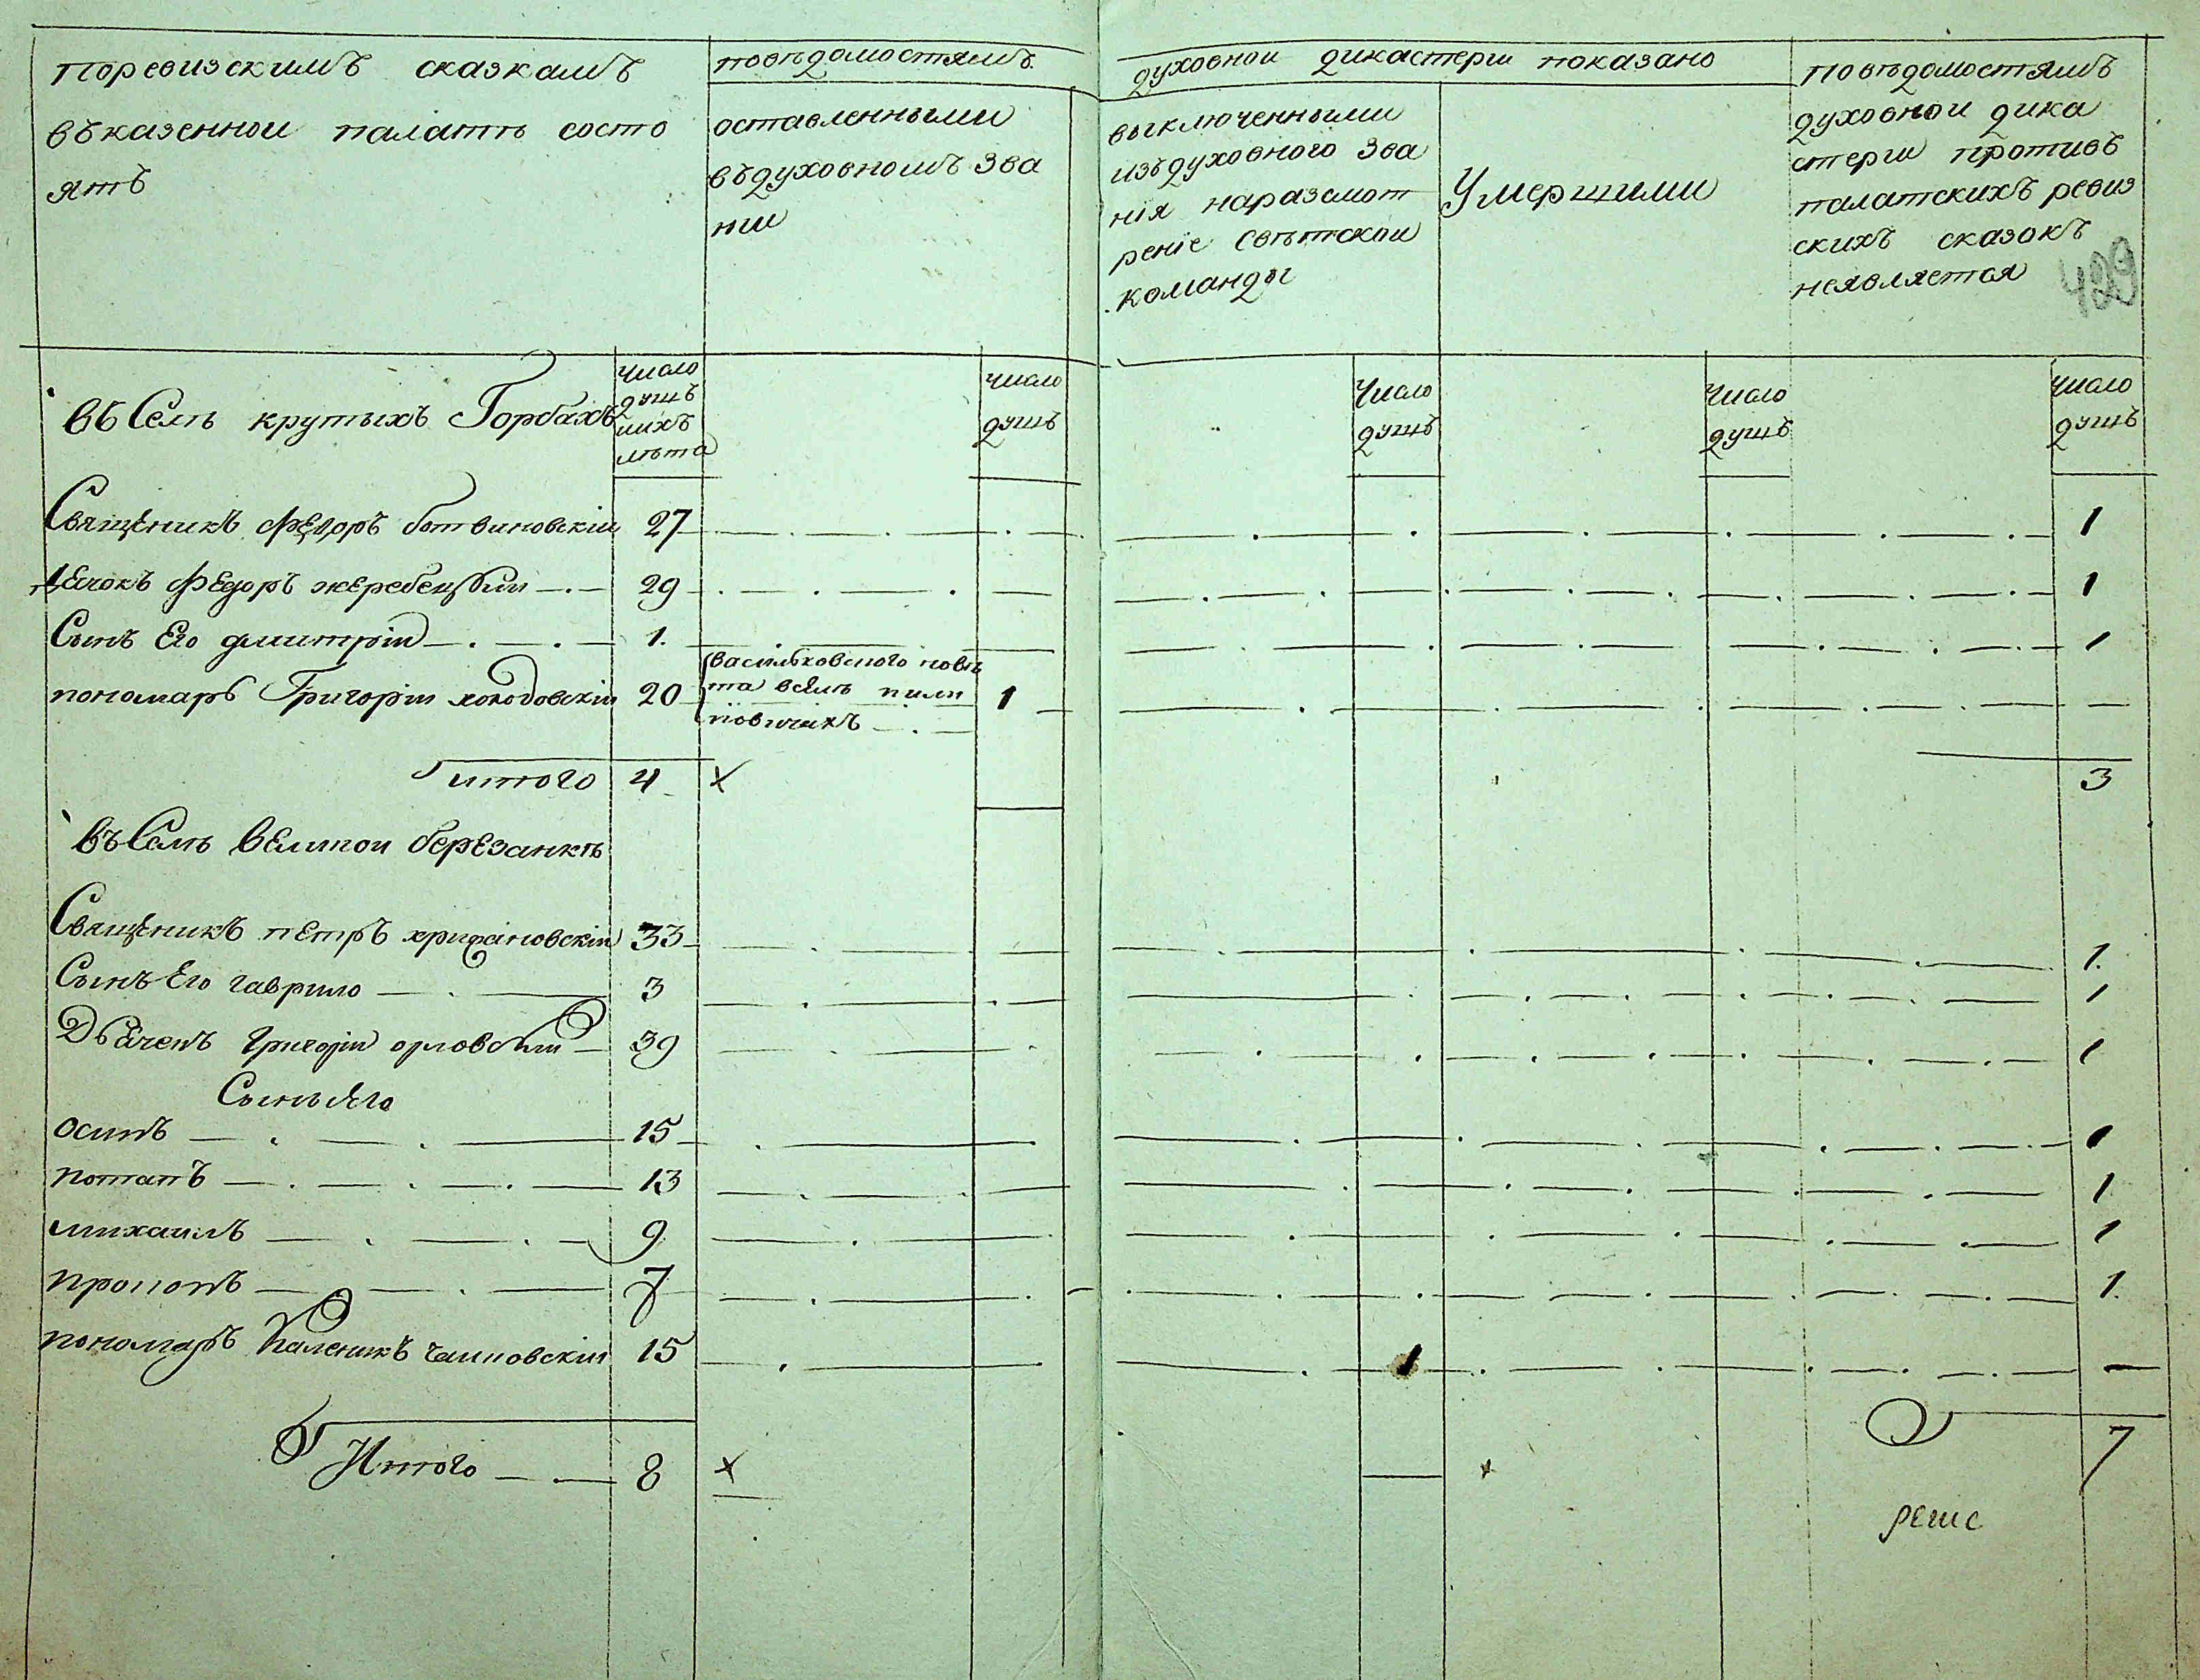 поревизскимъ сказкамъ
въказенной палатѣ состо
ятъ
повѣдомостямъ
оставленными
въдуховномъ зва
нии
духовной дикастерии показано
выключенными
изъдуховного зва
нія наразсмот
реніе свѣтской
команды
Умершими
повѣдомостямъ
духовной дика
стерии противъ
палатскихъ ревиз
скихъ сказокъ
неявляется
429
въ Селѣ крутыхъ Горбахъ
число душъ ихъ лѣта
число душъ
число душъ
число душъ
число душъ
Священикъ Федоръ ботвиновскій 27 1
Дечокъ Федоръ жеребецкий 29 1
Сынъ Его дмитрій 1 1
пономарь Григорій холодовскій 20
васильковского повѣ
та вселѣ пили
повичахъ 1
итого 4 х 3
въ Селѣ великой березанкѣ
Священикъ петръ хрищановскій 33 1
Сынъ Его гаврило 3 1
Дьяченъ Григорій орловский 39 1
Сыны Яго
осипъ 15 1
потапъ 13 1
михаилъ 9 1
прокопъ 7 1
пономарь Каленикъ 15 1
Итого 8 х х 7